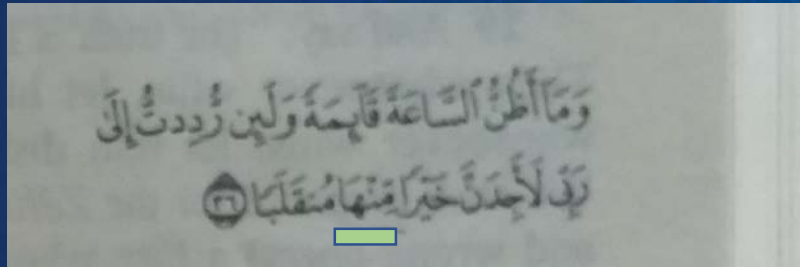 وَمَآ أَظُنُّ ٱلسَّاعَةَ قَآئِمَةً وَلَئِن رُّدِدتُّ إِلَىٰ
رَبِّى لَأَجِدَنَّ خَيْرًا مِّنْهَا مُنقَلَبًا ٣٦